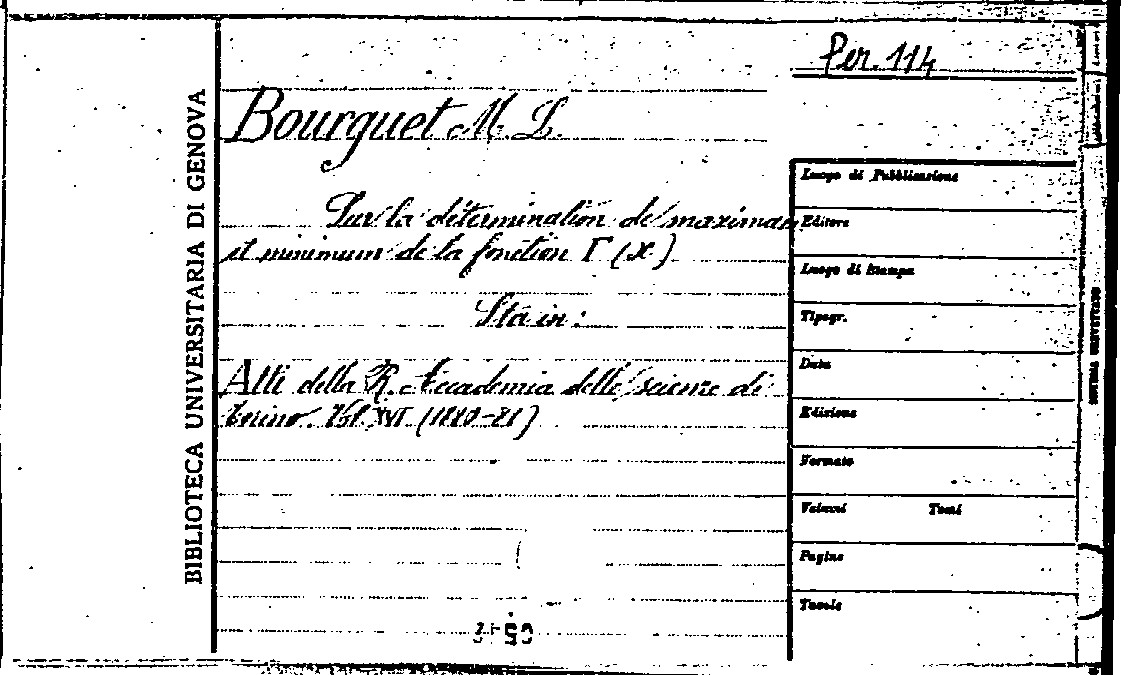 Per. 114
BIBLIOTECA UNIVERSITARIA DI GENOVA
Bourguet M. L.
Sur la détermination de maximum
et minimum de la fonction Γ (x)
Sta in:
Atti della R. Accademia delle scienze di
Torino. Vol. XVI (1880-81)
Luogo di Pubblicazione
Editore
Luogo di Stampa
Tipogr.
Data
Edizione
Formato
Volumi Tomi
Pagine
Tavole